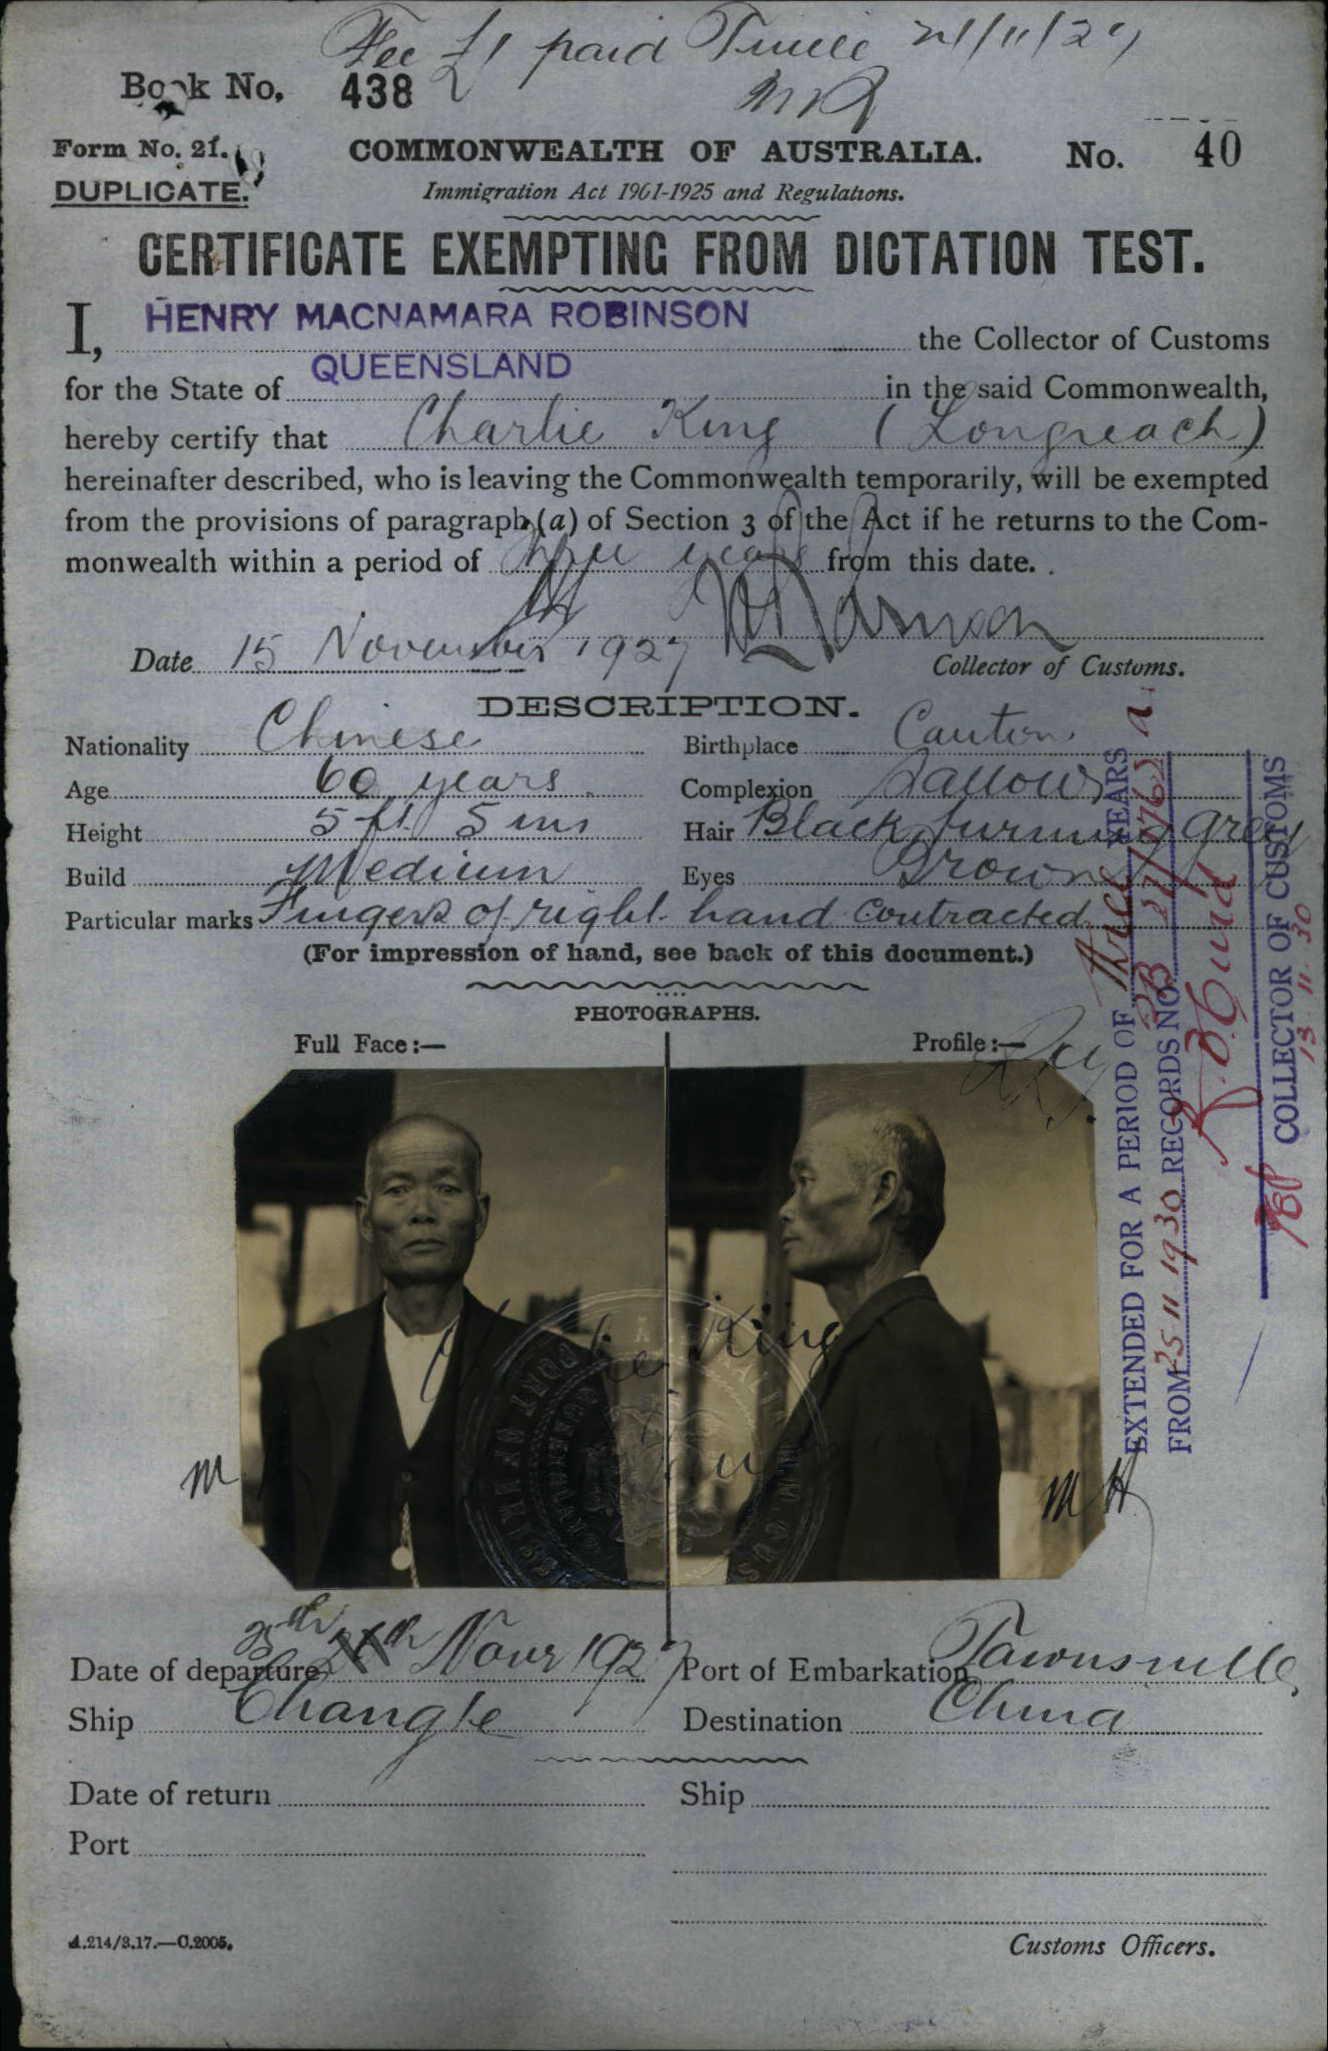 Fee £1 paid T'ville 21/11/27
Book No. 438
Form No. 21.
COMMONWEALTH OF AUSTRALIA.
No. 40
DUPLICATE.
Immigration Act 1901-1925 and Regulations.
CERTIFICATE EXEMPTING FROM DICTATION TEST.
I, HENRY MACNAMARA ROBINSON the Collector of Customs
for the State of QUEENSLAND in the said Commonwealth,
hereby certify that Charlie King (Longreach)
hereinafter described, who is leaving the Commonwealth temporarily, will be exempted
from the provisions of paragraph (a) of Section 3 of the Act if he returns to the Com-
monwealth within a period of three years from this date.
Date 15 November 1927
Collector of Customs.
DESCRIPTION.
Nationality Chinese Birthplace Canton
Age 60 years Complexion Sallow
Height 5 ft 5 ins Hair Black turning grey
Build Medium Eyes Brown
Particular marks Fingers of right hand contracted
(For impression of hand, see back of this document.)
PHOTOGRAPHS.
Full Face:— Profile:—
King
M
M H
EXTENDED FOR A PERIOD OF three YEARS
FROM 25 11 1930 RECORDS NO.
COLLECTOR OF CUSTOMS
13 11 30
Date of departure 25th 24th Novr 1927 Port of Embarkation Townsville
Ship Changte Destination China
Date of return Ship
Port
A.214/3.17.—C.2005.
Customs Officers.